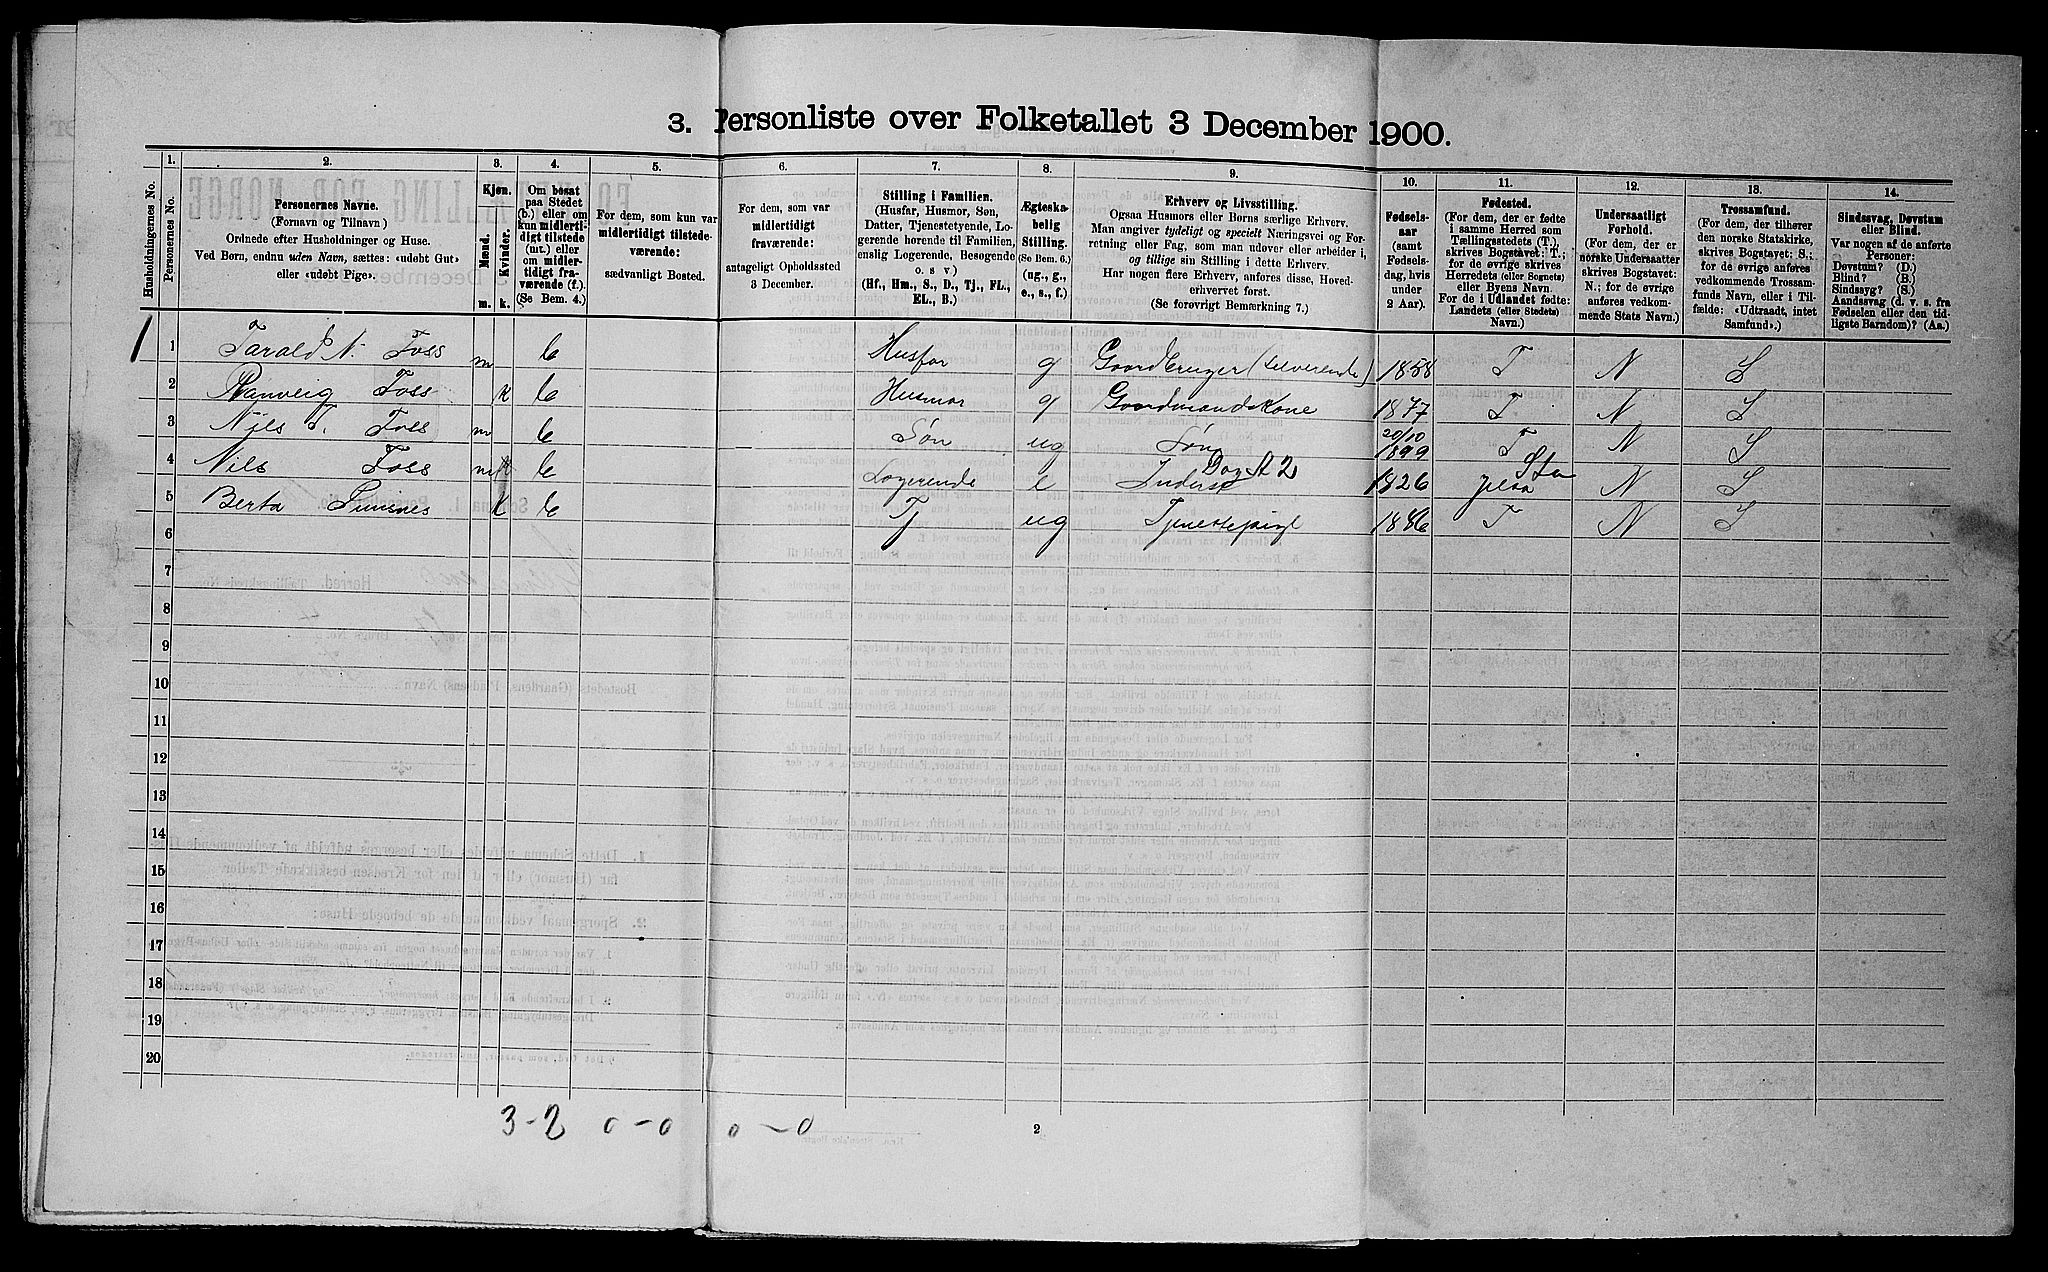 3. Personliste over Folketallet 3 December 1900.
1. 2. 3. 4. 5. 6. 7. 8. 9. 10. 11. 12. 13. 14.
Husholdningernes No.
Personernes No.
Personernes Navne.
(Fornavn og Tilnavn)
Ordnede efter Husholdninger og Huse.
Ved Børn, endnu uden Navn, sættes: «udøbt Gut»
eller «udøbt Pige».
Kjøn.
Mænd. Kvinder.
m. k.
Om bosat
paa Stedet
(b.) eller om
kun midler-
tidigt tilstede
(mt.) eller
om midler-
tidigt fra-
værende (f.)
(Se Bem. 4.)
For dem, som kun var
midlertidigt tilstede-
værende:
sædvanligt Bosted.
For dem, som var
midlertidigt
fraværende:
antageligt Opholdssted
3 December.
Stilling i Familien.
(Husfar, Husmor, Søn,
Datter, Tjenestetyende, Lo-
gerende hørende til Familien,
enslig Logerende, Besøgende
o. s v.)
(Hf., Hm., S., D., Tj., FL.,
EL., B.)
Ægteska-
belig
Stilling.
(Se Bem. 6.)
(ug., g.,
e., s., f.)
Erhverv og Livsstilling.
Ogsaa Husmors eller Børns særlige Erhverv.
Man angiver tydeligt og specielt Næringsvei og For-
retning eller Fag, som man udøver eller arbeider i,
og tillige sin Stilling i dette Erhverv.
Har nogen flere Erhverv, anføres disse, Hoved-
erhvervet først.
(Se forøvrigt Bemærkning 7.)
Fødsels-
aar
(samt
Fødsels-
dag, hvis
under
2 Aar).
Fødested.
(For dem, der er fødte
i samme Herred som
Tællingsstedets (T.),
skrives Bogstavet: T.;
for de øvrige skrives
Herredets (eller Sognets)
eller Byens Navn.
For de i Udlandet fødte:
Landets (eller Stedets)
Navn.)
Undersaatligt
Forhold.
(For dem, der er
norske Undersaatter
skrives Bogstavet:
N.; for de øvrige
anføres vedkom-
mende Stats Navn.)
Trossamfund.
(For dem, der tilhører
den norske Statskirke,
skrives Bogstavet: S.;
for de øvrige anføres
vedkommende Trossam-
funds Navn, eller i Til-
fælde: «Udtraadt, intet
Samfund».)
Sindssvag, Døvstum
eller Blind.
Var nogen af de anførte
Personer:
Døvstum? (D.)
Blind? (B.)
Sindssyg? (S.)
Aandssvag (d. v. s. fra
Fødselen eller den tid-
ligste Barndom)? (Aa.)
1 1 Tarald N. Foss m b Husfar g Gaardbruger (selveiende) 1858 T N S
2 Ranveig Foss k b Husmor g Gaardmandskone 1877 T N S
3 Nils T. Foss m b Søn ug Søn 20/10 1899 T N S
4 Nils Foss m b Logerende e Inderst Dag A 2 1826 N S
5 Berta k b Tj ug Tjenestepige 1886 T N S
6
7
8
9
10
11
12
13
14
15
16
17
18
19
20
3-2 0-0 0-0
2